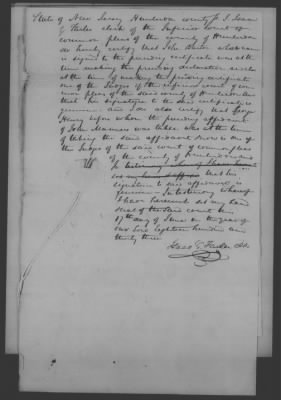 State of New Jersey Hunterdon county ss I Isaac
G Farlee clerk of the Inferior court of
common pleas of the county of Hunterdon
do hereby certify that John whose name
is signed to the preceding certificate was at the
time making the preceding declaration and
at the time of making the preceding certificate
one of the Judges of the inferior court of com
mon pleas of the said county of Hunterdon and
that his signature to the said certificate is
genuine and I do also certify that George
Henry before whom the preceding affidavit
of John was taken was at the time
of taking the said affidavit one of
the Judges of the said court of common pleas
of the county of Hunterdon and
that his
signature to said affidavit is
genuine In testimony whereof
I have hereunto set my hand
seal of the said court this
17th day of June in the year of
our Lord eighteen hundred and
thirty three
Isaac G Farlee Clk